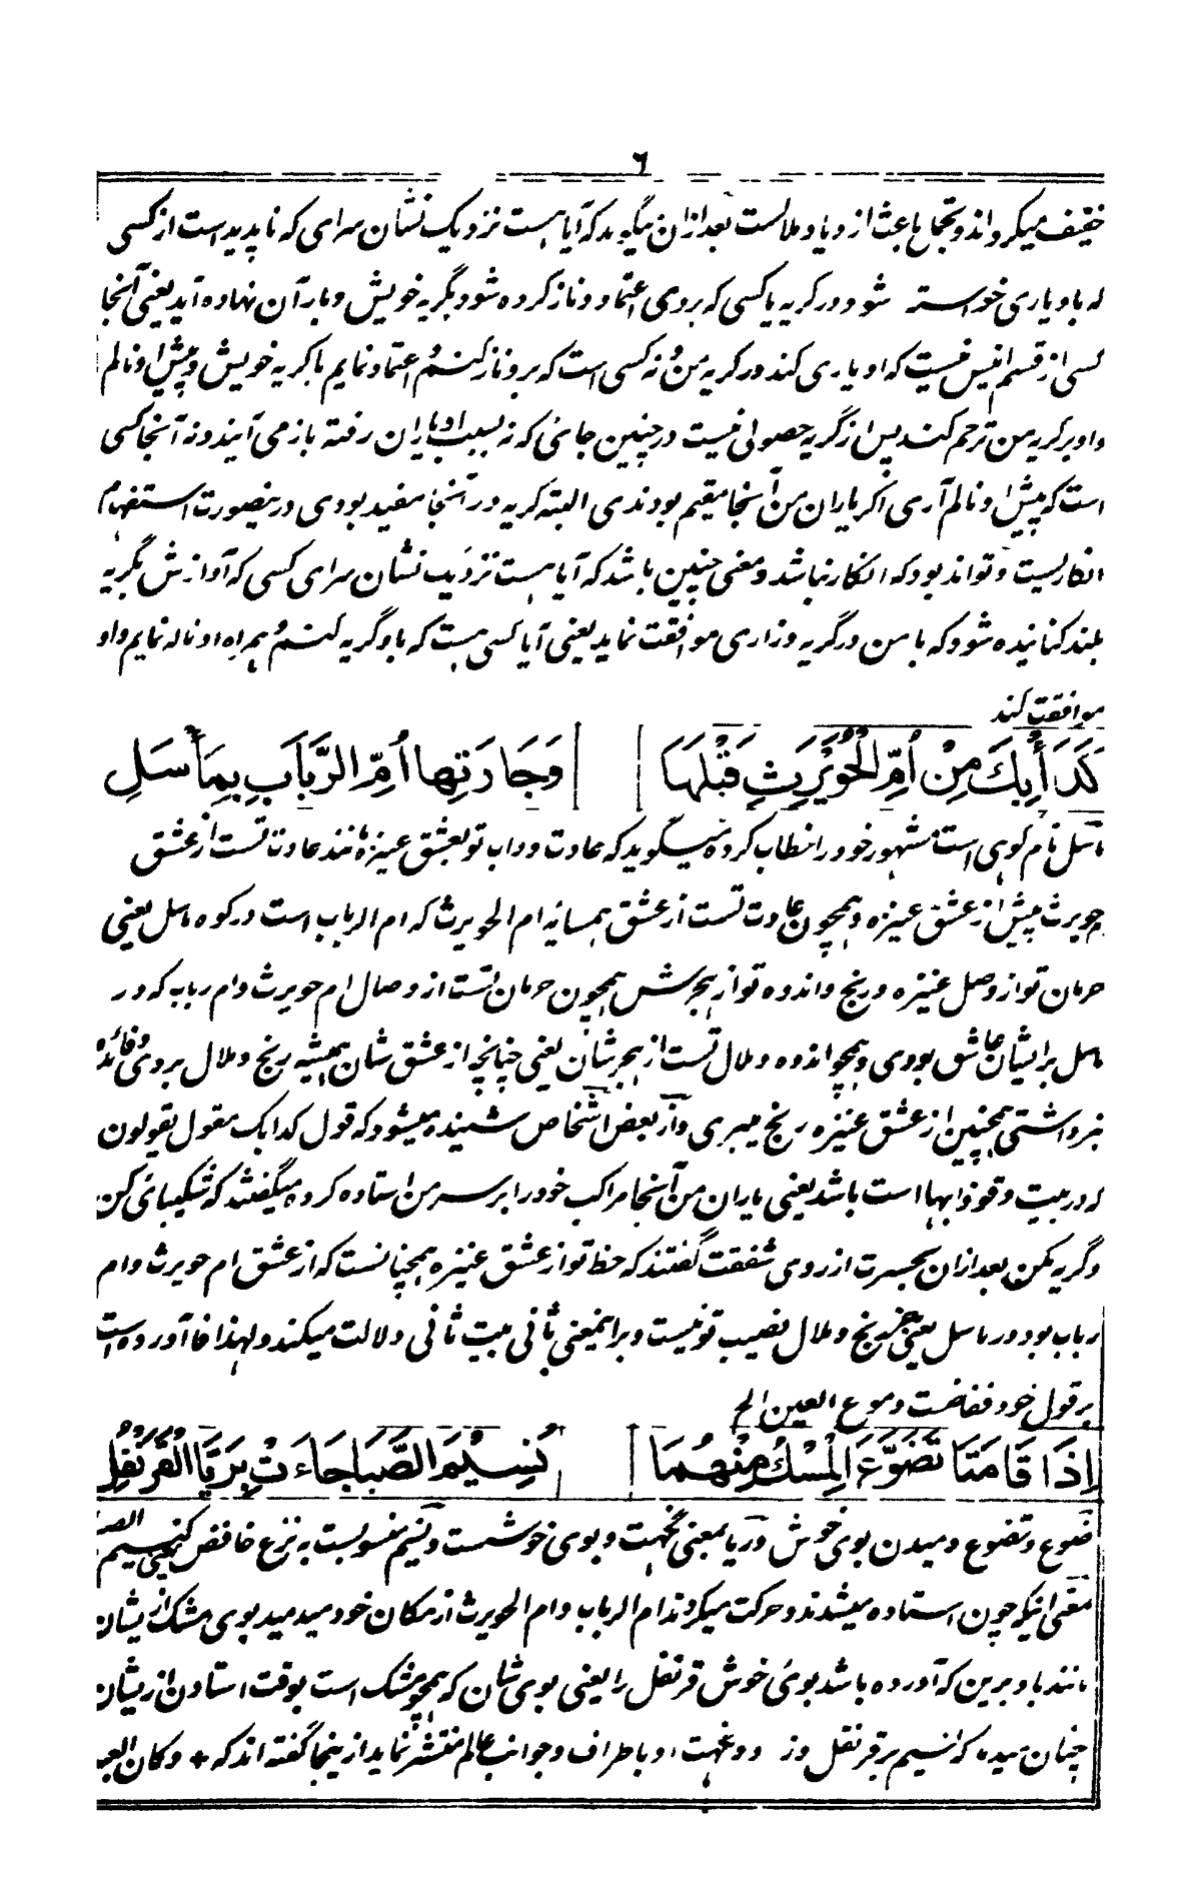 ٦
خفیف میگرداند و تحمل باعث ازدیاد ملالست بعد ازان میگوید که آیا هست نزدیک نشان سرای که ناپدید است از کسی
که باو یاری خواسته شود در گریه یا کسی که بروی اعتماد و ناز کرده شود بگریه خویش و بار آن نهاده آید یعنی آنجا
کسی از قسم انیس نیست که او یاری کند در گریه من و نه کسی است که برو ناز کنم و اعتماد نمایم با گریه خویش و پیش او نالم
و او بر گریه من ترحم کند پس از گریه حصولی نیست در چنین جائی که نه بسبب او یاران رفته باز می آیند و نه آنجا کسی
است که پیش او نالم آری اگر یاران من آنجا مقیم بودندی البته گریه در آنجا مفید بودی درینصورت استفهام
انکاریست و تواند بود که انکار نباشد و معنی چنین باشد که آیا هست نزدیک نشان سرای کسی که آوازش بگریه
بلند کنانیده شود که با من در گریه و زاری موافقت نماید یعنی آیا کسی هست که باو گریه کنم و همراه او ناله نمایم و او
موافقت کند
كَدَأْبِكَ مِنْ أُمِّ الْحُوَيْرِثِ قَبْلَهَا وَجَارَتِهَا أُمِّ الرَّبَابِ بِمَأْسَلِ
ماسل نام کوهی است مشهور خود را خطاب کرده میگوید که عادت و داب تو بعشق عنیزه مانند عادت تست از عشق
حویرث پیش از عشق عنیزه و همچون عادت تست از عشق همسایه ام الحویرث که ام الرباب است در کوه ماسل یعنی
حرمان تو از وصل عنیزه و رنج و اندوه تو از هجرش همچون حرمان تست از وصال ام حویرث و ام رباب که در
ماسل برایشان عاشق بودی و همچو اندوه و ملال تست از هجرشان یعنی چنانچه از عشق شان همیشه رنج و ملال بردی و فائده
نبرداشتی همچنین از عشق عنیزه رنج میبری و از بعض اشخاص شنیده میشود که قول کدابک مقول یقولون
که در بیت وقوفا بها است باشد یعنی یاران من آنجا مراکب خود را بر سر من استاده کرده میگفتند که شکیبائی کن
و گریه مکن بعد ازان بحسرت از روی شفقت گفتند که حظ تو از عشق عنیزه همچنانست که از عشق ام حویرث و ام
رباب بود در ماسل یعنی بجز رنج و ملال نصیب تو نیست و برا ینمعنی ثانی بیت ثانی دلالت میکند و لهذا فا آورده است
بر قول خود ففاضت دموع العین الخ
إِذَا قَامَتَا تَضَوَّعَ الْمِسْكُ مِنْهُمَا نَسِيْمَ الصَّبَا جَاءَتْ بِرَيَّا الْقَرَنْفُلِ
ضوع و تضوع دمیدن بوی خوش و ریا بمعنی نکهت و بوی خوشست و نسیم منسوبست به نزع خافض یعنی کنسیم الصبا
معنی اینکه چون استاده میشدند و حرکت میکردند ام الرباب و ام الحویرث از مکان خود میدمید بوی مشک ازیشان
مانند باد برین که آورده باشد بوی خوش قرنفل را یعنی بوی شان که همچو مشک است بوقت استادن ازیشان
چنان میده که نسیم بر قرنفل وزد و نکهت او باطراف و جوانب عالم منتشر نماید ازینجا گفته اند که + و کان